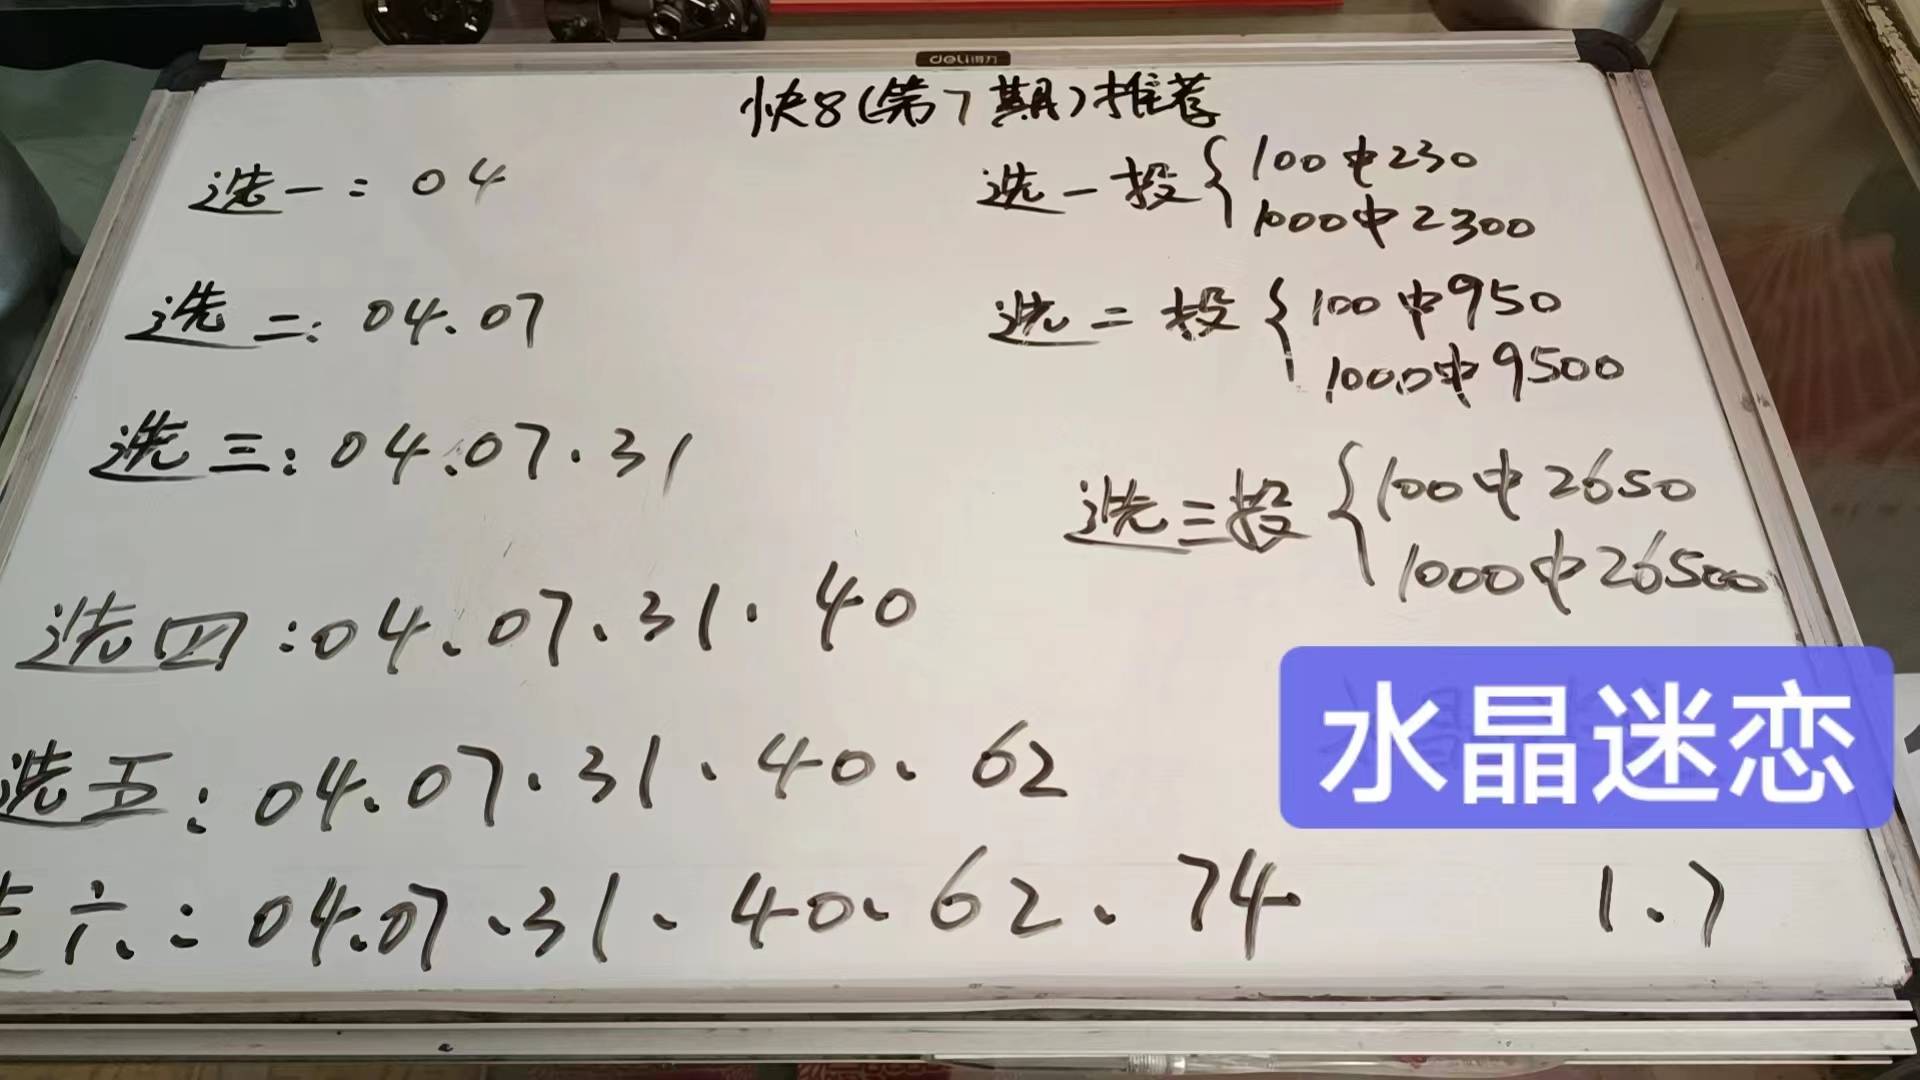 deli得力
快8(第7期)推荐
选一：04
选二：04.07
选三：04.07.31
选四：04.07、31.40
选五：04.07.31、40、62
选六：04.07、31、40、62、74
选一投{100中230
1000中2300
选二投{100中950
1000中9500
选三投{100中2650
1000中26500
水晶迷恋
1.7